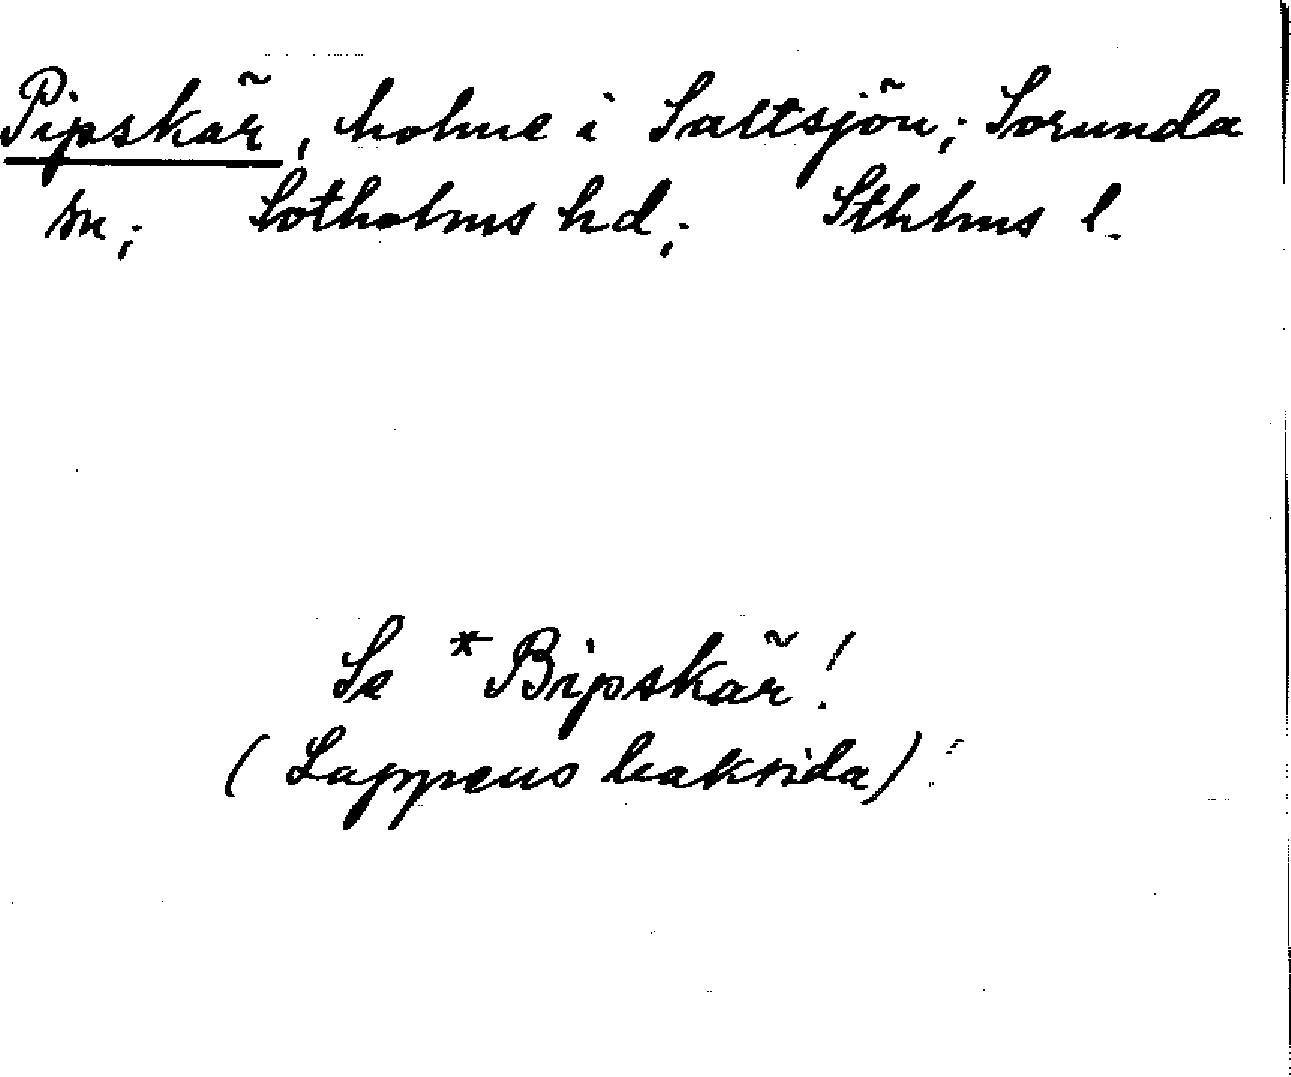 Pipskär, holme i Saltsjön; Sorunda
sn; Sotholms hd; Sthlms l.
Se *Bipskär!
(Lappens baksida)!